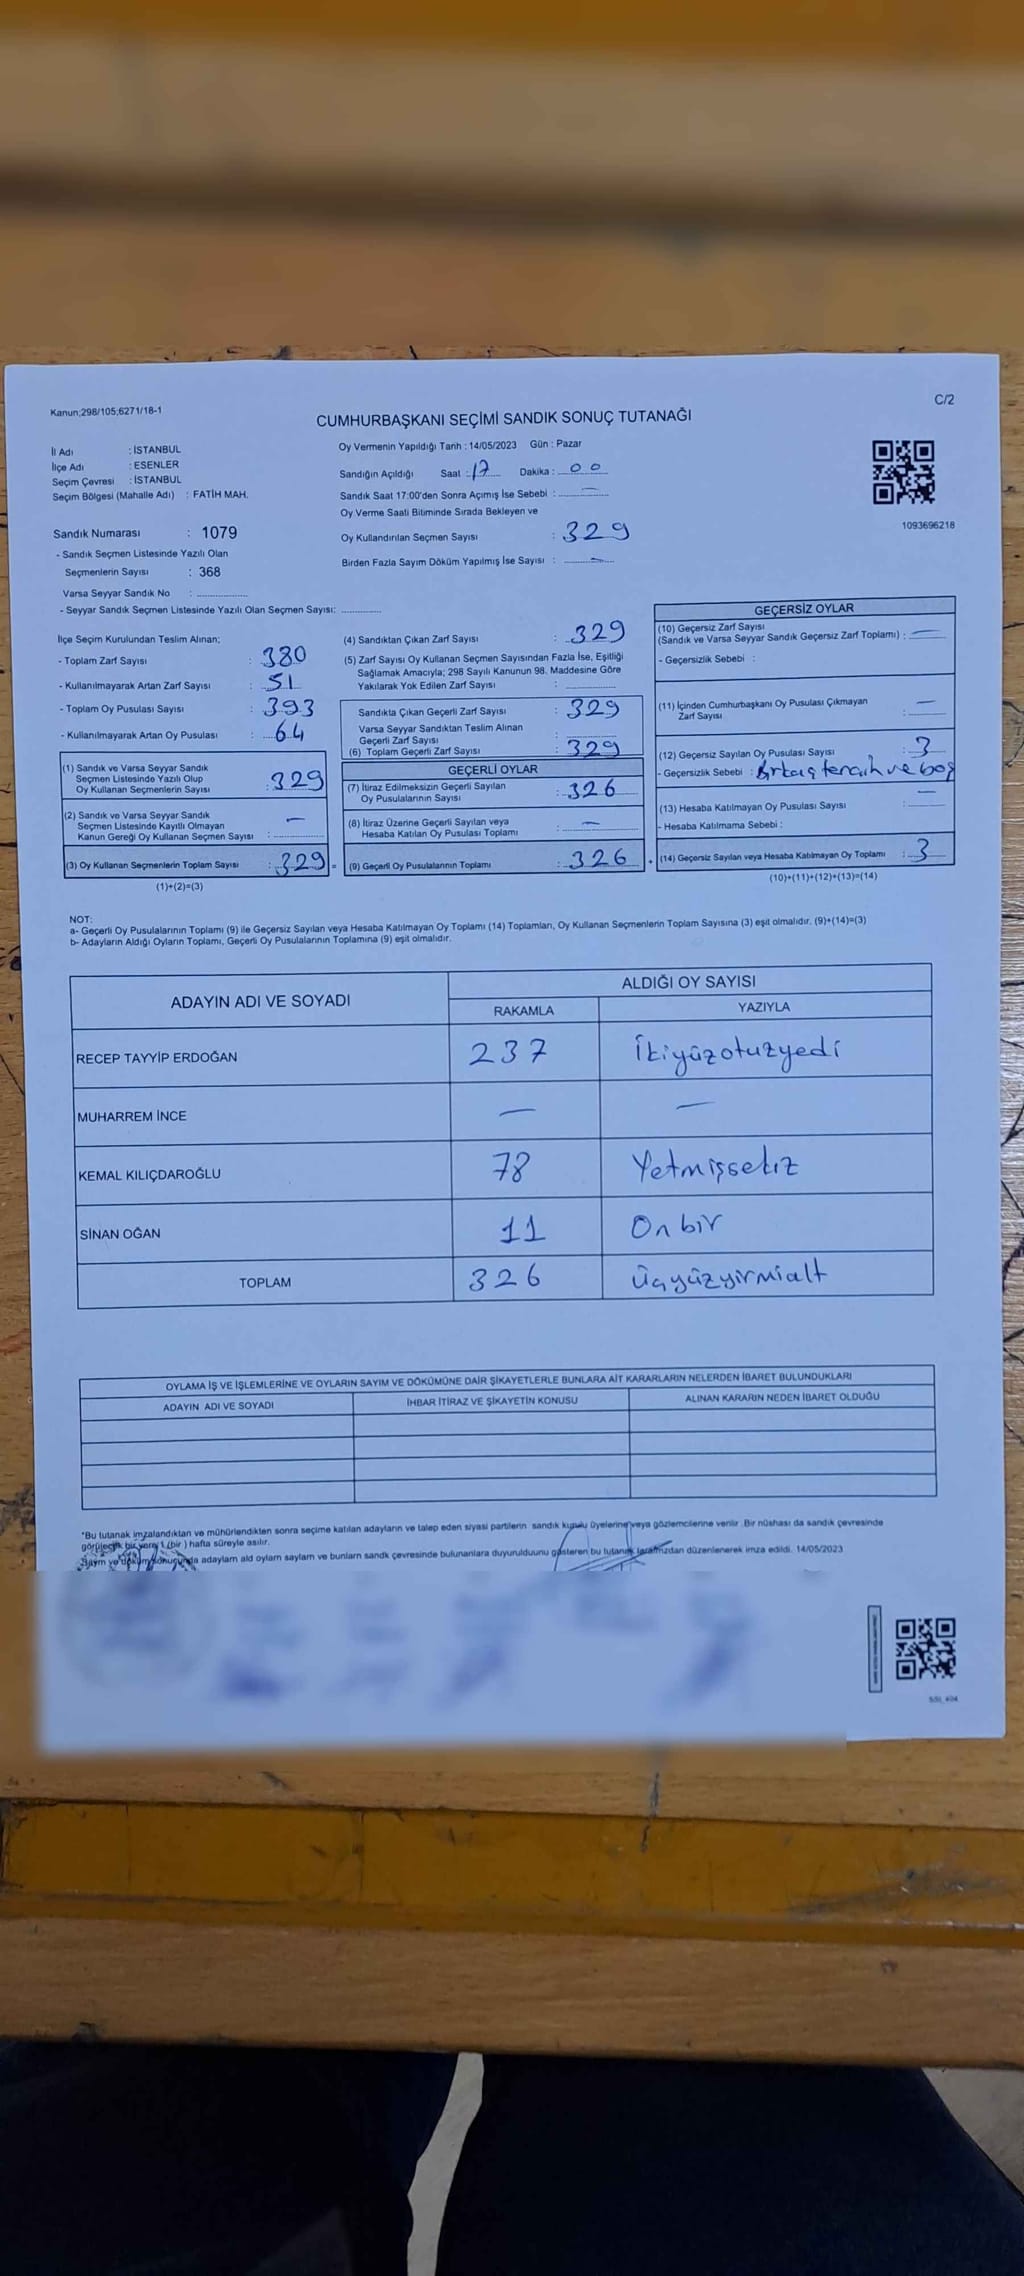 Kanun;298/105;6271/18-1
C/2
CUMHURBAŞKANI SEÇİMİ SANDIK SONUÇ TUTANAĞI
İl Adı : İSTANBUL
İlçe Adı : ESENLER
Seçim Çevresi : İSTANBUL
Seçim Bölgesi (Mahalle Adı) : FATİH MAH.
Oy Vermenin Yapıldığı Tarih : 14/05/2023 Gün : Pazar
Sandığın Açıldığı Saat : 17 Dakika : 00
Sandık Saat 17:00'den Sonra Açımış İse Sebebi : —
Oy Verme Saati Bitiminde Sırada Bekleyen ve
Oy Kullandırılan Seçmen Sayısı : 329
Birden Fazla Sayım Döküm Yapılmış İse Sayısı : —
1093696218
Sandık Numarası : 1079
- Sandık Seçmen Listesinde Yazılı Olan
Seçmenlerin Sayısı : 368
Varsa Seyyar Sandık No :
- Seyyar Sandık Seçmen Listesinde Yazılı Olan Seçmen Sayısı:
İlçe Seçim Kurulundan Teslim Alınan;
- Toplam Zarf Sayısı : 380
- Kullanılmayarak Artan Zarf Sayısı : 51
- Toplam Oy Pusulası Sayısı : 393
- Kullanılmayarak Artan Oy Pusulası : 64
(1) Sandık ve Varsa Seyyar Sandık
Seçmen Listesinde Yazılı Olup
Oy Kullanan Seçmenlerin Sayısı : 329
(2) Sandık ve Varsa Seyyar Sandık
Seçmen Listesinde Kayıtlı Olmayan
Kanun Gereği Oy Kullanan Seçmen Sayısı : —
(3) Oy Kullanan Seçmenlerin Toplam Sayısı : 329 =
(1)+(2)=(3)
(4) Sandıktan Çıkan Zarf Sayısı : 329
(5) Zarf Sayısı Oy Kullanan Seçmen Sayısından Fazla İse, Eşitliği
Sağlamak Amacıyla; 298 Sayılı Kanunun 98. Maddesine Göre
Yakılarak Yok Edilen Zarf Sayısı :
Sandıkta Çıkan Geçerli Zarf Sayısı : 329
Varsa Seyyar Sandıktan Teslim Alınan
Geçerli Zarf Sayısı :
(6) Toplam Geçerli Zarf Sayısı : 329
GEÇERLİ OYLAR
(7) İtiraz Edilmeksizin Geçerli Sayılan
Oy Pusulalarının Sayısı : 326
(8) İtiraz Üzerine Geçerli Sayılan veya
Hesaba Katılan Oy Pusulası Toplamı : —
(9) Geçerli Oy Pusulalarının Toplamı : 326
GEÇERSİZ OYLAR
(10) Geçersiz Zarf Sayısı
(Sandık ve Varsa Seyyar Sandık Geçersiz Zarf Toplamı) : —
- Geçersizlik Sebebi :
(11) İçinden Cumhurbaşkanı Oy Pusulası Çıkmayan
Zarf Sayısı : —
(12) Geçersiz Sayılan Oy Pusulası Sayısı : 3
- Geçersizlik Sebebi : Birkaç tercih ve boş
(13) Hesaba Katılmayan Oy Pusulası Sayısı : —
- Hesaba Katılmama Sebebi :
(14) Geçersiz Sayılan veya Hesaba Katılmayan Oy Toplamı : 3
(10)+(11)+(12)+(13)=(14)
NOT:
a- Geçerli Oy Pusulalarının Toplamı (9) ile Geçersiz Sayılan veya Hesaba Katılmayan Oy Toplamı (14) Toplamları, Oy Kullanan Seçmenlerin Toplam Sayısına (3) eşit olmalıdır. (9)+(14)=(3)
b- Adayların Aldığı Oyların Toplamı, Geçerli Oy Pusulalarının Toplamına (9) eşit olmalıdır.
ADAYIN ADI VE SOYADI
ALDIĞI OY SAYISI
RAKAMLA YAZIYLA
RECEP TAYYİP ERDOĞAN 237 İkiyüzotuzyedi
MUHARREM İNCE — —
KEMAL KILIÇDAROĞLU 78 Yetmişsekiz
SİNAN OĞAN 11 Onbir
TOPLAM 326 üçyüzyirmialt
OYLAMA İŞ VE İŞLEMLERİNE VE OYLARIN SAYIM VE DÖKÜMÜNE DAİR ŞİKAYETLERLE BUNLARA AİT KARARLARIN NELERDEN İBARET BULUNDUKLARI
ADAYIN ADI VE SOYADI İHBAR İTİRAZ VE ŞİKAYETİN KONUSU ALINAN KARARIN NEDEN İBARET OLDUĞU
*Bu tutanak imzalandıktan ve mühürlendikten sonra seçime katılan adayların ve talep eden siyasi partilerin sandık kurulu üyelerine veya gözlemcilerine verilir. Bir nüshası da sandık çevresinde
görülecek bir yere 1 (bir ) hafta süreyle asılır.
Sayım ve döküm sonucunda adayların ald oyların sayların ve bunların sandk çevresinde bulunanlara duyurulduunu gösteren bu tutanak tarafımızdan düzenlenerek imza edildi. 14/05/2023